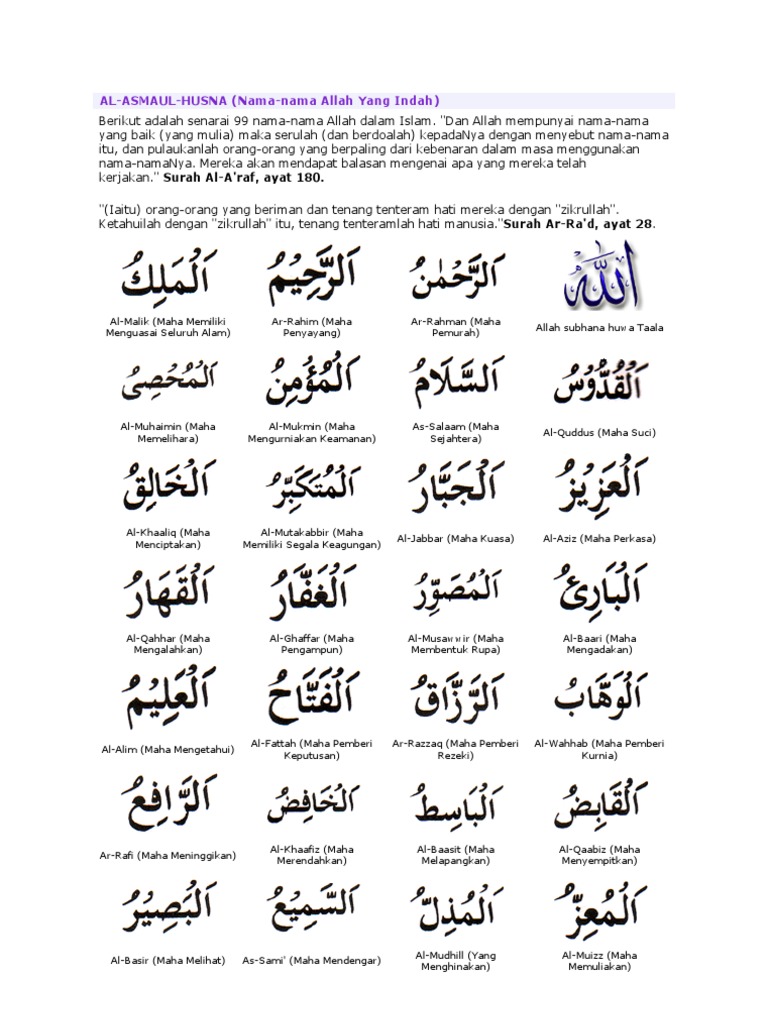 AL-ASMAUL-HUSNA (Nama-nama Allah Yang Indah)
Berikut adalah senarai 99 nama-nama Allah dalam Islam. "Dan Allah mempunyai nama-nama
yang baik (yang mulia) maka serulah (dan berdoalah) kepadaNya dengan menyebut nama-nama
itu, dan pulaukanlah orang-orang yang berpaling dari kebenaran dalam masa menggunakan
nama-namaNya. Mereka akan mendapat balasan mengenai apa yang mereka telah
kerjakan." Surah Al-A'raf, ayat 180.
"(Iaitu) orang-orang yang beriman dan tenang tenteram hati mereka dengan "zikrullah".
Ketahuilah dengan "zikrullah" itu, tenang tenteramlah hati manusia."Surah Ar-Ra'd, ayat 28.
الله
Allah subhana huwa Taala
اَلرَّحْمٰنُ
Ar-Rahman (Maha
Pemurah)
اَلرَّحِيْمُ
Ar-Rahim (Maha
Penyayang)
اَلْمَلِكُ
Al-Malik (Maha Memiliki
Menguasai Seluruh Alam)
اَلْقُدُّوْسُ
Al-Quddus (Maha Suci)
اَلسَّلَامُ
As-Salaam (Maha
Sejahtera)
اَلْمُؤْمِنُ
Al-Mukmin (Maha
Mengurniakan Keamanan)
اَلْمُحْصِىُ
Al-Muhaimin (Maha
Memelihara)
اَلْعَزِيْزُ
Al-Aziz (Maha Perkasa)
اَلْجَبَّارُ
Al-Jabbar (Maha Kuasa)
اَلْمُتَكَبِّرُ
Al-Mutakabbir (Maha
Memiliki Segala Keagungan)
اَلْخَالِقُ
Al-Khaaliq (Maha
Menciptakan)
اَلْبَارِئُ
Al-Baari (Maha
Mengadakan)
اَلْمُصَوِّرُ
Al-Musawwir (Maha
Membentuk Rupa)
اَلْغَفَّارُ
Al-Ghaffar (Maha
Pengampun)
اَلْقَهَارُ
Al-Qahhar (Maha
Mengalahkan)
اَلْوَهَّابُ
Al-Wahhab (Maha Pemberi
Kurnia)
اَلرَّزَّاقُ
Ar-Razzaq (Maha Pemberi
Rezeki)
اَلْفَتَّاحُ
Al-Fattah (Maha Pemberi
Keputusan)
اَلْعَلِيْمُ
Al-Alim (Maha Mengetahui)
اَلْقَابِضُ
Al-Qaabiz (Maha
Menyempitkan)
اَلْبَاسِطُ
Al-Baasit (Maha
Melapangkan)
اَلْخَافِضُ
Al-Khaafiz (Maha
Merendahkan)
اَلرَّافِعُ
Ar-Rafi (Maha Meninggikan)
اَلْمُعِزُّ
Al-Muizz (Maha
Memuliakan)
اَلْمُذِلُّ
Al-Mudhill (Yang
Menghinakan)
اَلسَّمِيْعُ
As-Sami' (Maha Mendengar)
اَلْبَصِيْرُ
Al-Basir (Maha Melihat)